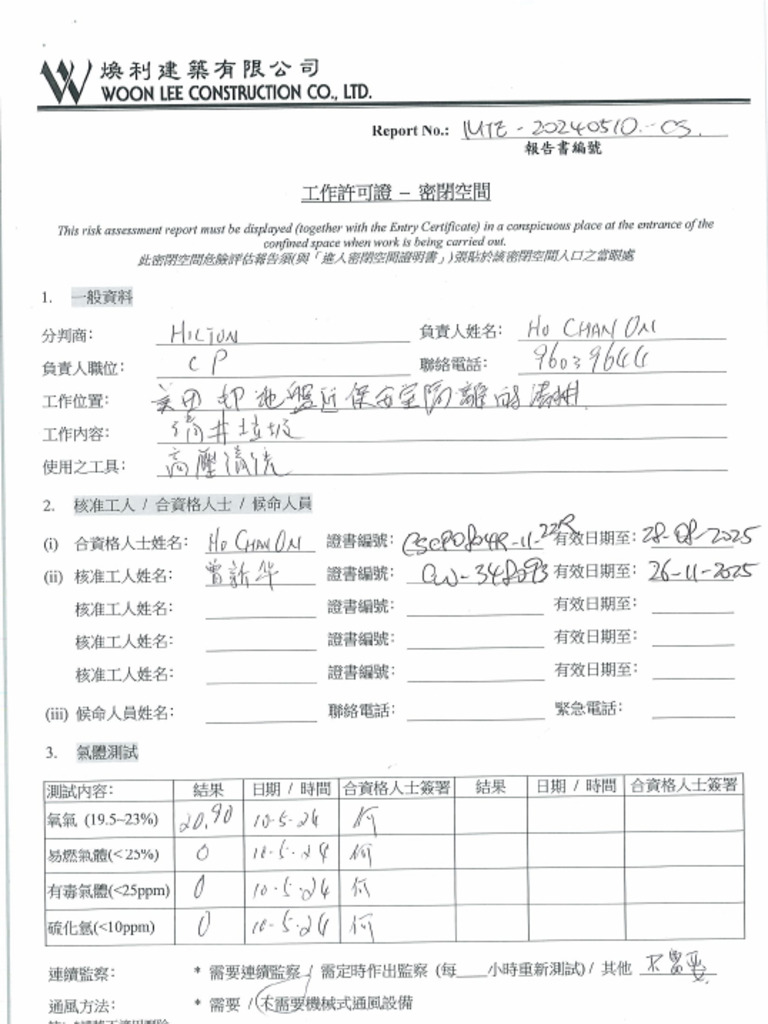 煥利建築有限公司
WOON LEE CONSTRUCTION CO., LTD.
Report No.: IMTE - 20240510 - CS.
報告書編號
工作許可證 – 密閉空間
This risk assessment report must be displayed (together with the Entry Certificate) in a conspicuous place at the entrance of the
confined space when work is being carried out.
此密閉空間危險評估報告須(與「進入密閉空間證明書」)張貼於該密閉空間入口之當眼處
1. 一般資料
分判商: HILTON 負責人姓名: HO CHAN ON
負責人職位: CP 聯絡電話: 96039644
工作位置: 美田邨地盤近保安室隔離的
工作內容: 清井垃圾
使用之工具: 高壓清洗
2. 核准工人 / 合資格人士 / 候命人員
(i) 合資格人士姓名: HO CHAN ON 證書編號: 有效日期至: 28-08-2025
(ii) 核准工人姓名: 曾新华 證書編號: CW-348093 有效日期至: 26-11-2025
核准工人姓名: 證書編號: 有效日期至:
核准工人姓名: 證書編號: 有效日期至:
核准工人姓名: 證書編號: 有效日期至:
(iii) 候命人員姓名: 聯絡電話: 緊急電話:
3. 氣體測試
測試內容: 結果 日期 / 時間 合資格人士簽署 結果 日期 / 時間 合資格人士簽署
氧氣 (19.5~23%) 20.90 10-5-24 何
易燃氣體(<25%) 0 10-5-24 何
有毒氣體(<25ppm) 0 10-5-24 何
硫化氫(<10ppm) 0 10-5-24 何
連續監察: * 需要連續監察 / 需定時作出監察 (每___小時重新測試) / 其他 不需要
通風方法: * 需要 / 不需要機械式通風設備